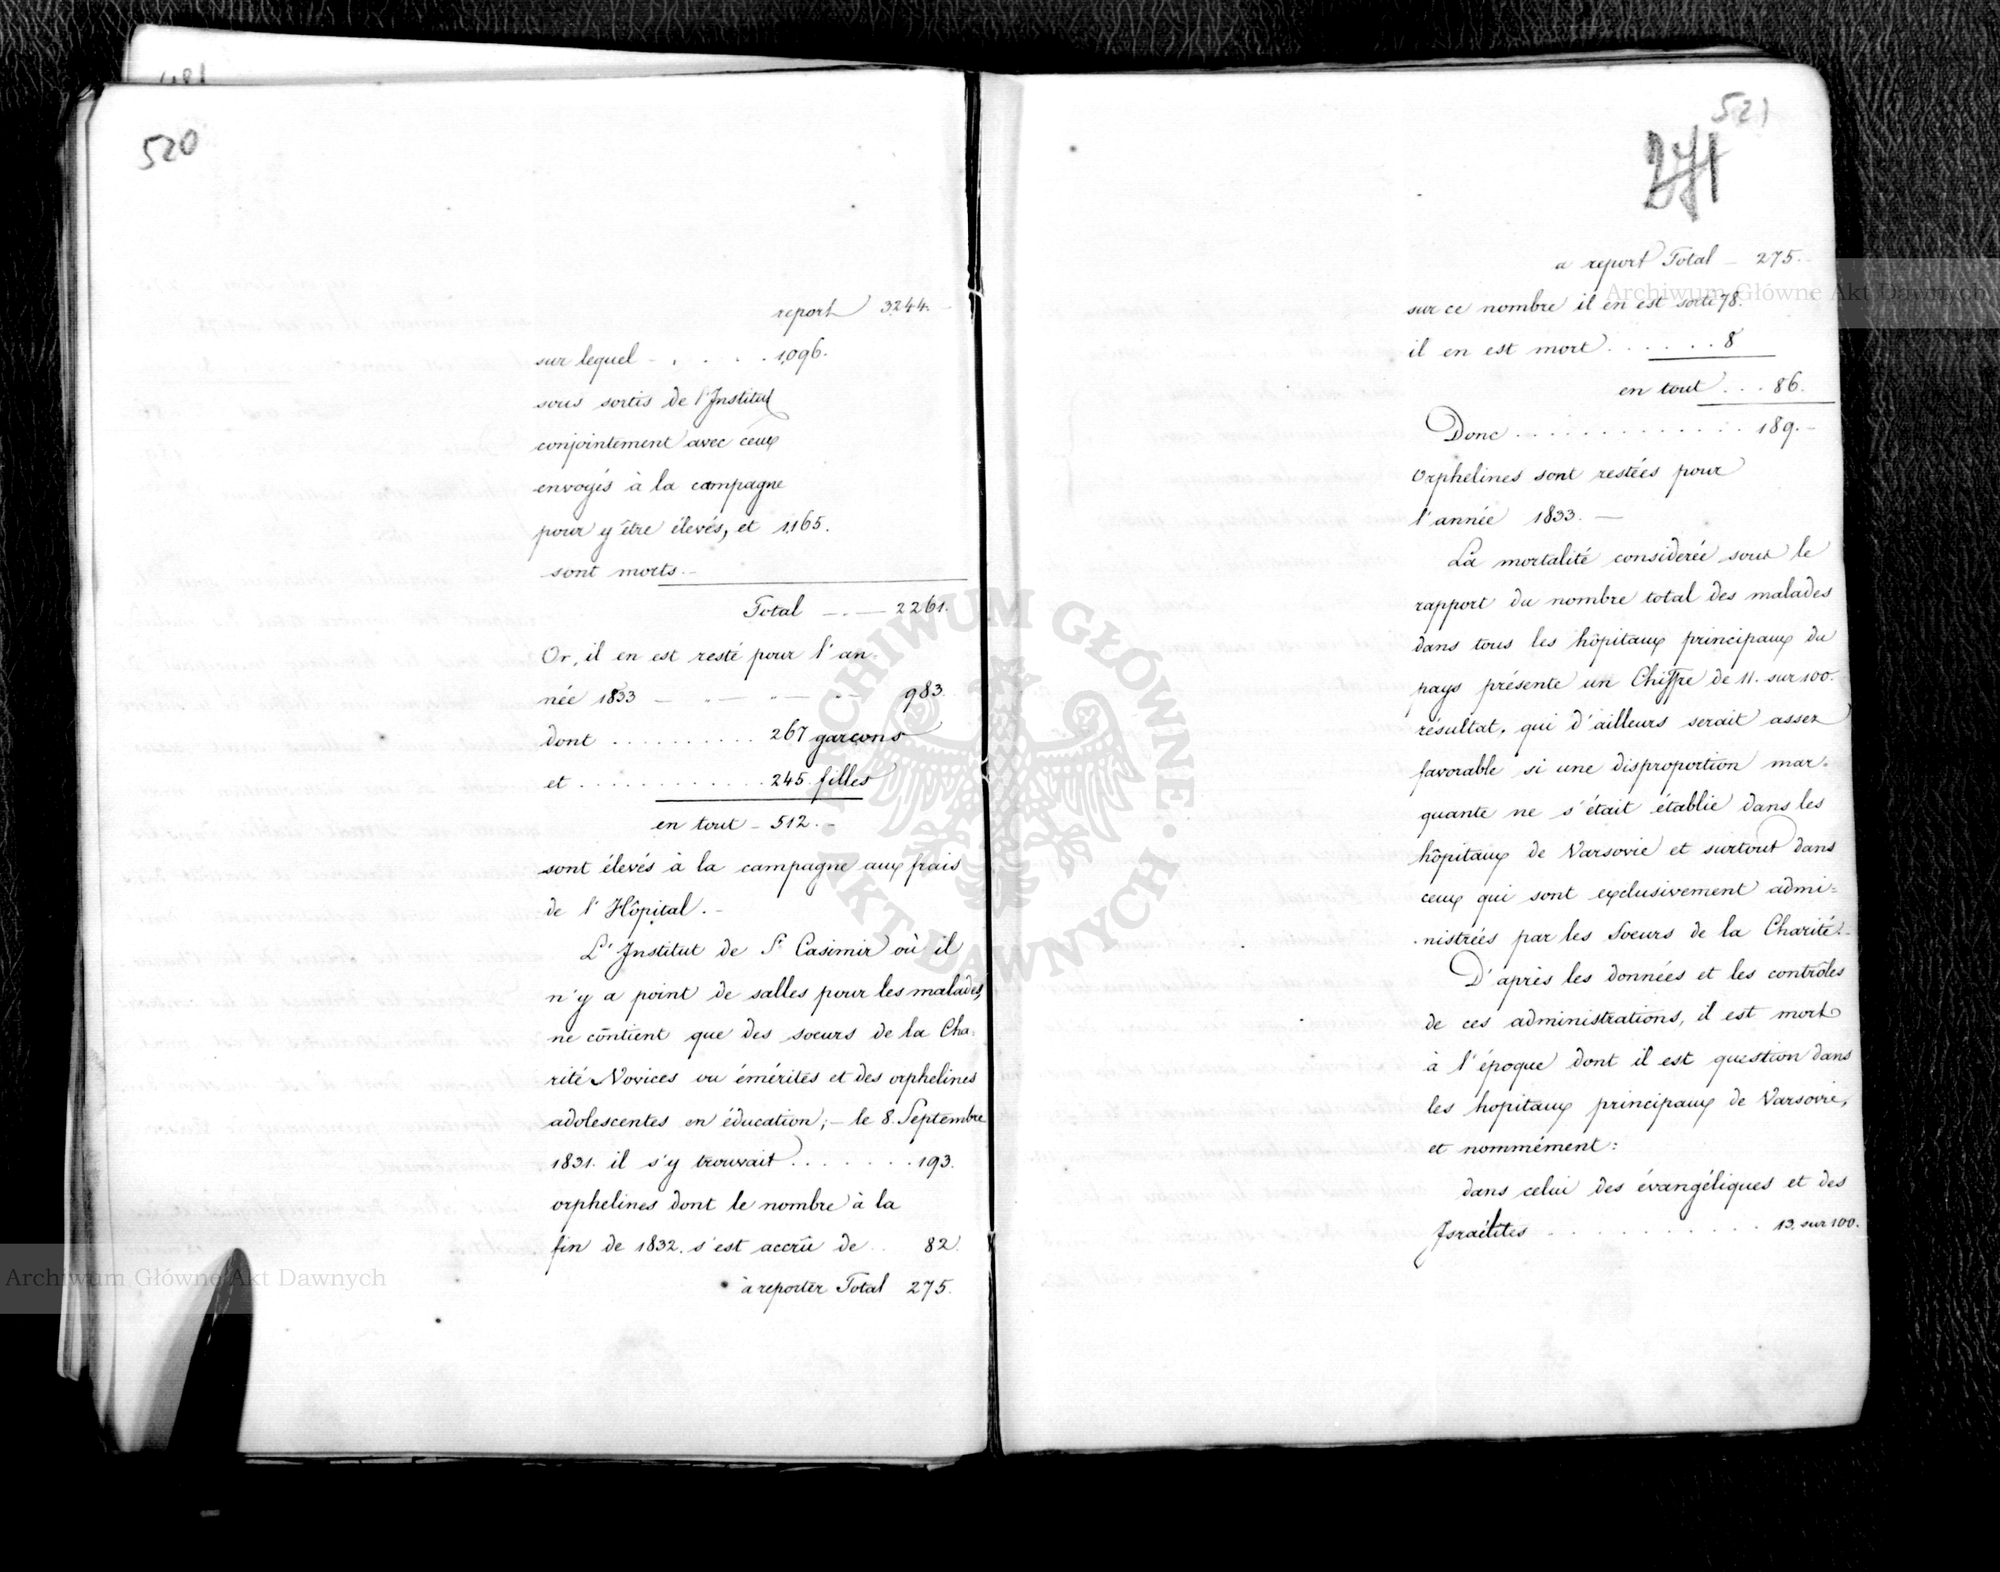 481
520
report 3244.
sur lequel - . . . . 1,096.
sous sortis de l'Institut
conjointement avec ceux
envoyés à la campagne
pour y être élevés, et 1,165.
sont morts. -
Total - . - 2261.
Or, il en est resté pour l'an-
née 1833 - " - " - " - 983.
dont . . . . . . . . . . 267 garçons
et . . . . . . . . . . . . . 245. filles
en tout - 512. -
sont élevés à la campagne aux frais
de l'Hôpital. -
L'Institut de St. Casimir où il
n'y a point de salles pour les malades,
ne contient que des soeurs de la Cha-
rité Novices ou émérites et des orphelines
adolescentes en éducation; - le 8. Septembre
1831. il s'y trouvait . . . . . . . 193.
orphelines dont le nombre à la
fin de 1832. s'est accrû de . . 82.
à reporter Total 275.
521
271
a report Total - 275. -
sur ce nombre il en est sorti 78.
il en est mort . . . . . . 8
en tout . . . 86.
Donc . . . . . . . . . . . . . 189. -
Orphelines sont restées pour
l'année 1833. -
La mortalité considerée sous le
rapport du nombre total des malades
dans tous les hôpitaux principaux du
pays présente un Chiffre de 11. sur 100.
résultat, qui d'ailleurs serait assez
favorable si une disproportion mar-
quante ne s'était établie dans les
hôpitaux de Varsovie et surtout dans
ceux qui sont exclusivement admi-
nistrées par les Soeurs de la Charité. -
D'après les données et les contrôles
de ces administrations, il est mort
à l'époque dont il est question dans
les hopitaux principaux de Varsovie,
et nommément:
dans celui des évangéliques et des
Israélites . . . . . . . . . . . 13. sur 100.
Archiwum Główne Akt Dawnych
Archiwum Główne Akt Dawnych
ARCHIWUM GŁÓWNE · AKT DAWNYCH ·